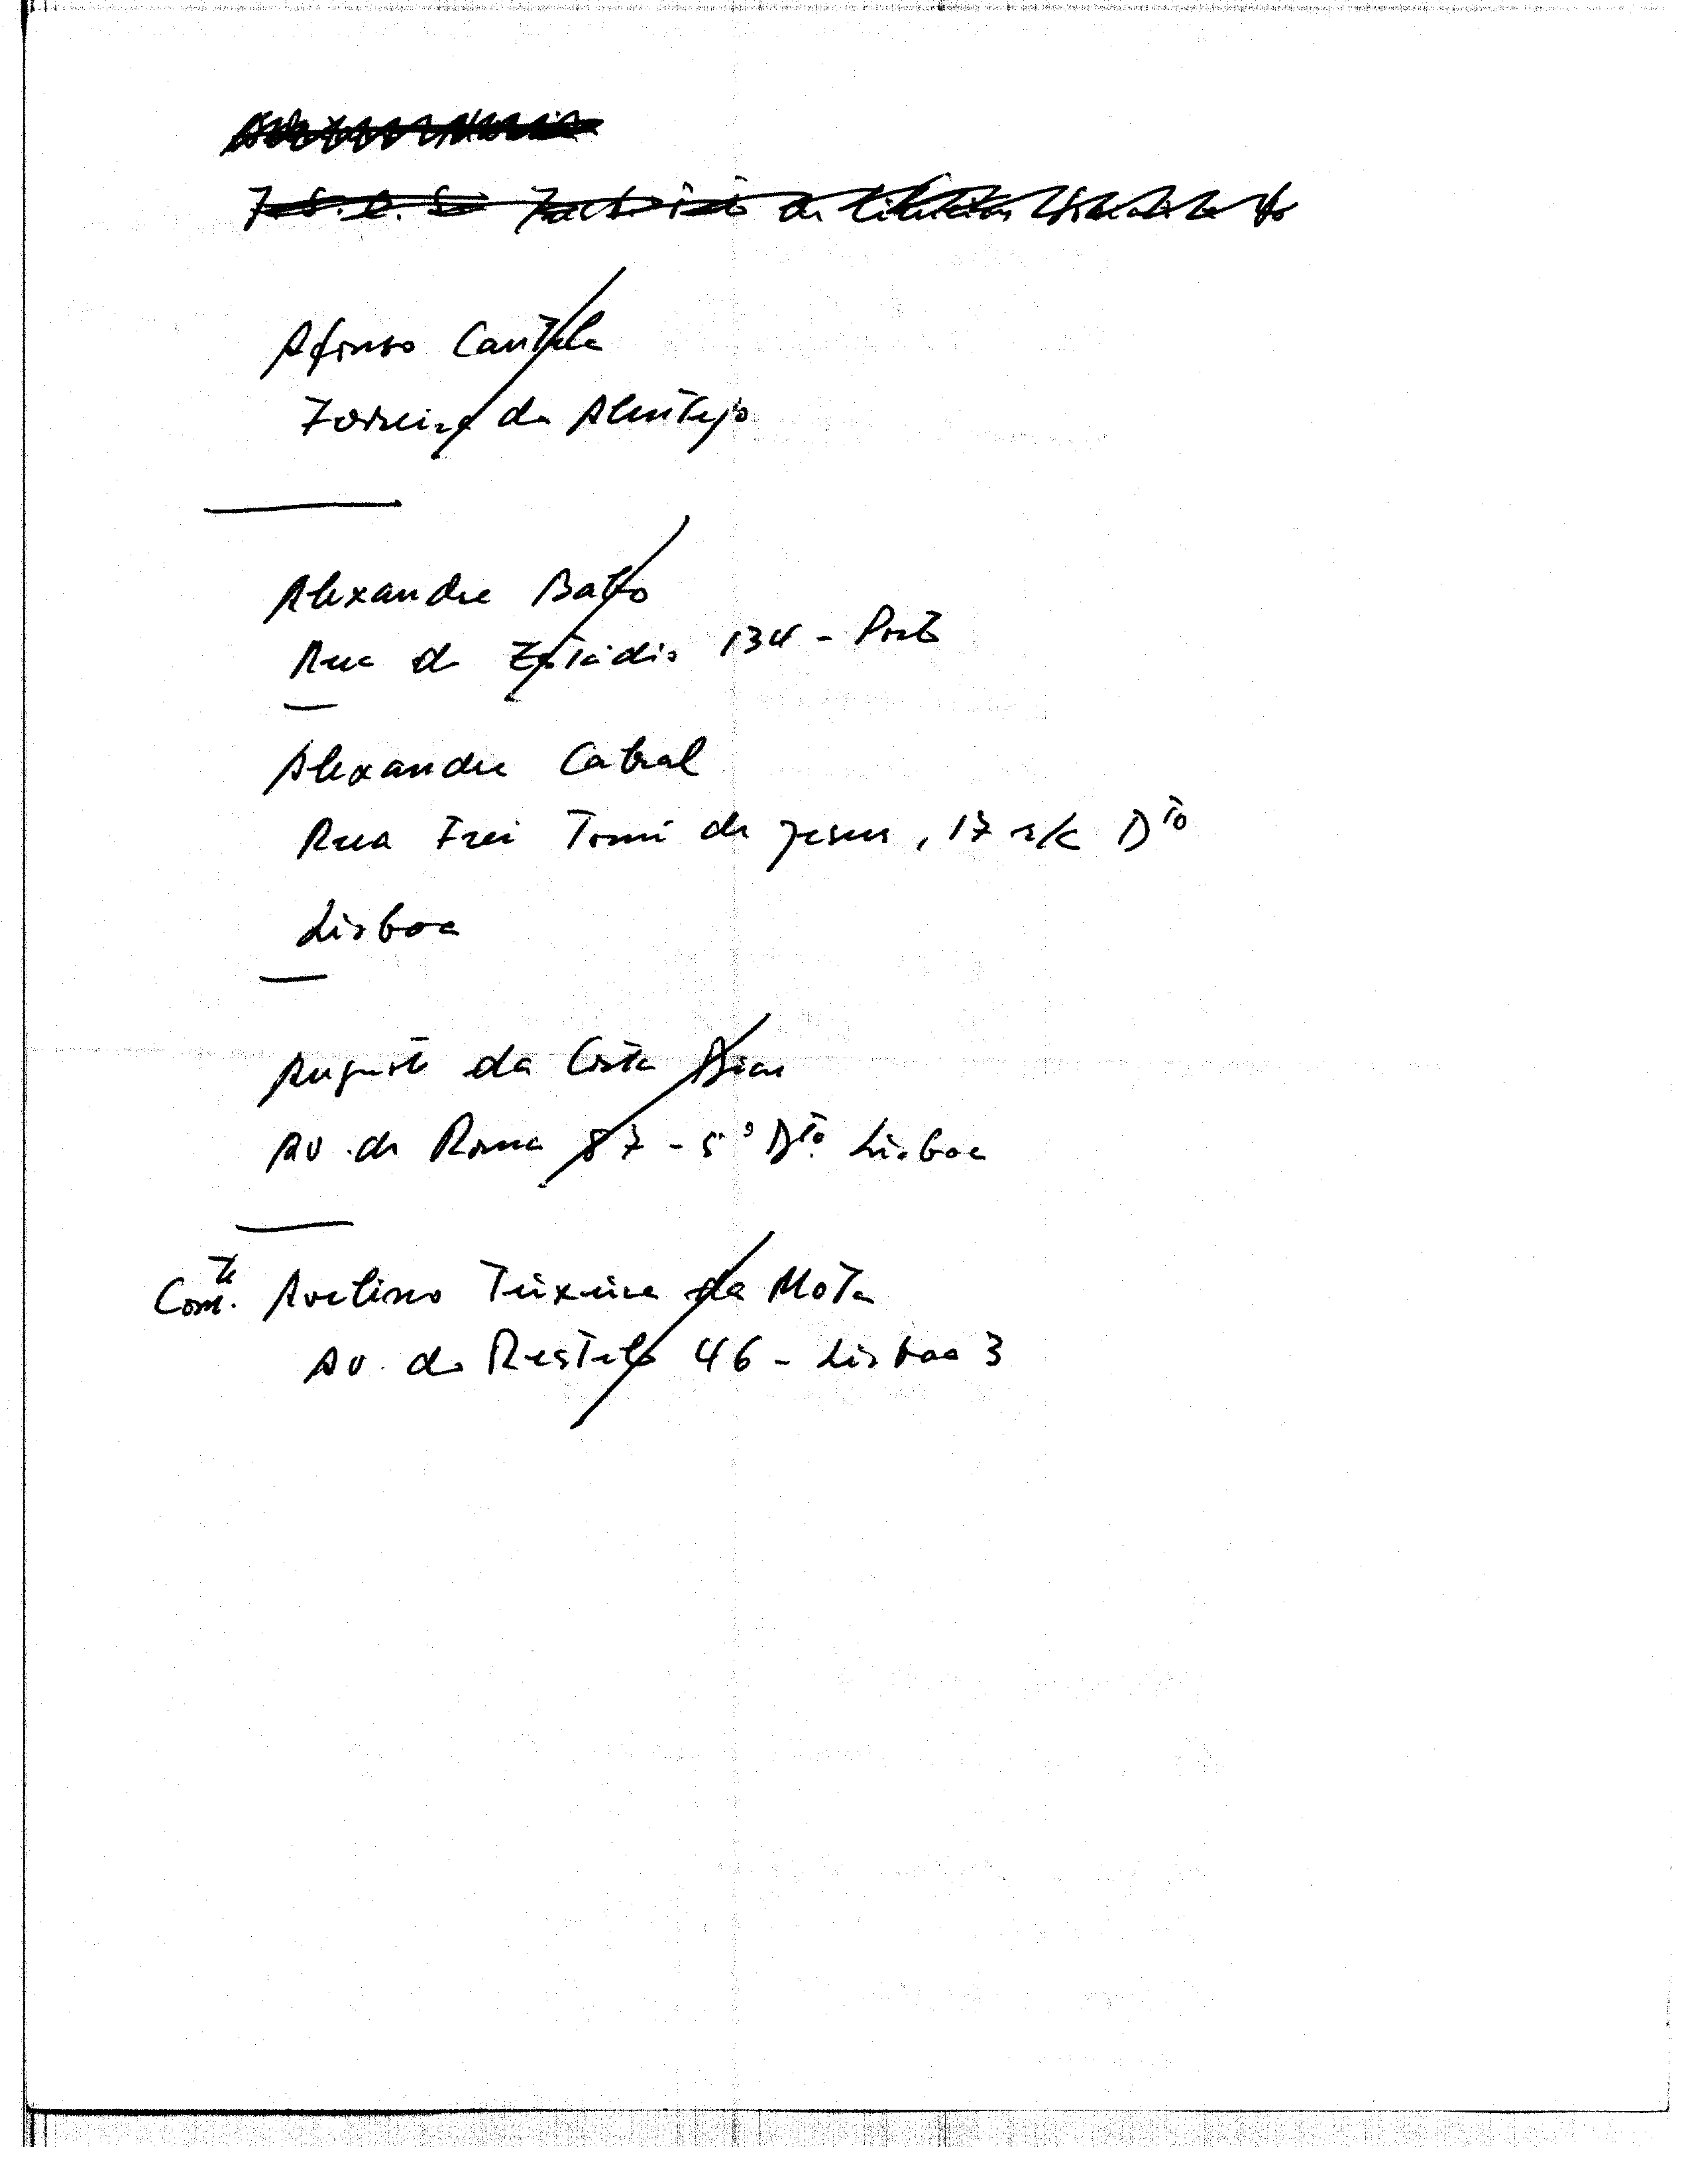 Afonso Cautela
Ferreira do Alentejo
Alexandre Babo
Rua do Estádio 134 - Porto
Alexandre Cabral
Rua Frei Tomé de Jesus, 17 r/c Dto
Lisboa
Augusto da Costa Dias
Av. de Roma 87 - 5º Dto. Lisboa
Com.te Avelino Teixeira da Mota
Av. do Restelo 46 - Lisboa 3